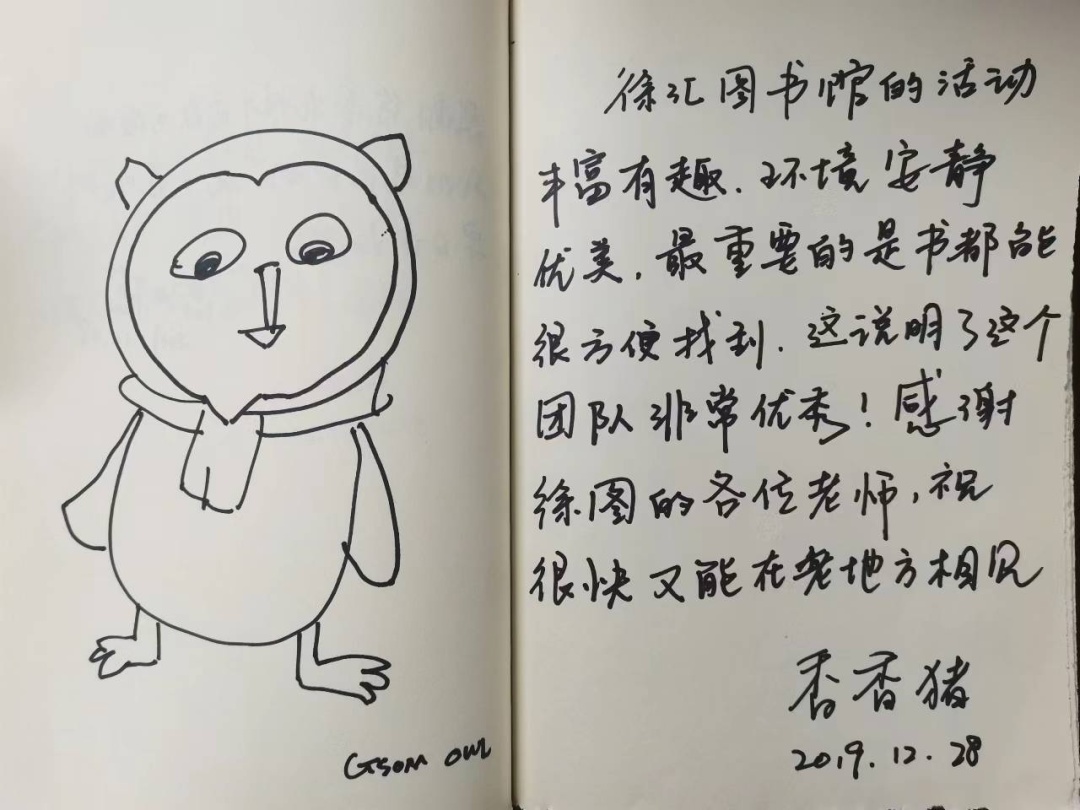 Gsom owl
徐汇图书馆的活动
丰富有趣.环境安静
优美.最重要的是书都能
很方便找到.这说明了这个
团队非常优秀!感谢
徐图的各位老师,祝
很快又能在老地方相见
香香猪
2019.12.28